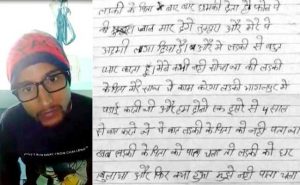 लड़की के पिता बार बार धमकी देता है फोन पे
की जान मार देंगे तुमको और मेरे पे
आदमी लगा दिया है। और मैं लड़की से बहुत
प्यार करता हूं। मैंने कभी नहीं सोचा था की लड़की
के पिता मेरे साथ में काम करेगा भागलपुर में
पढ़ाई करते थे और हम दोनों एक दूसरे से 4 साल
से प्यार करते थे ये बात लड़की के पिता को नहीं पता था
जब लड़की के पिता को पता चला तो लड़की को घर
बुलाया और फिर क्या हुआ मुझे नहीं पता चला